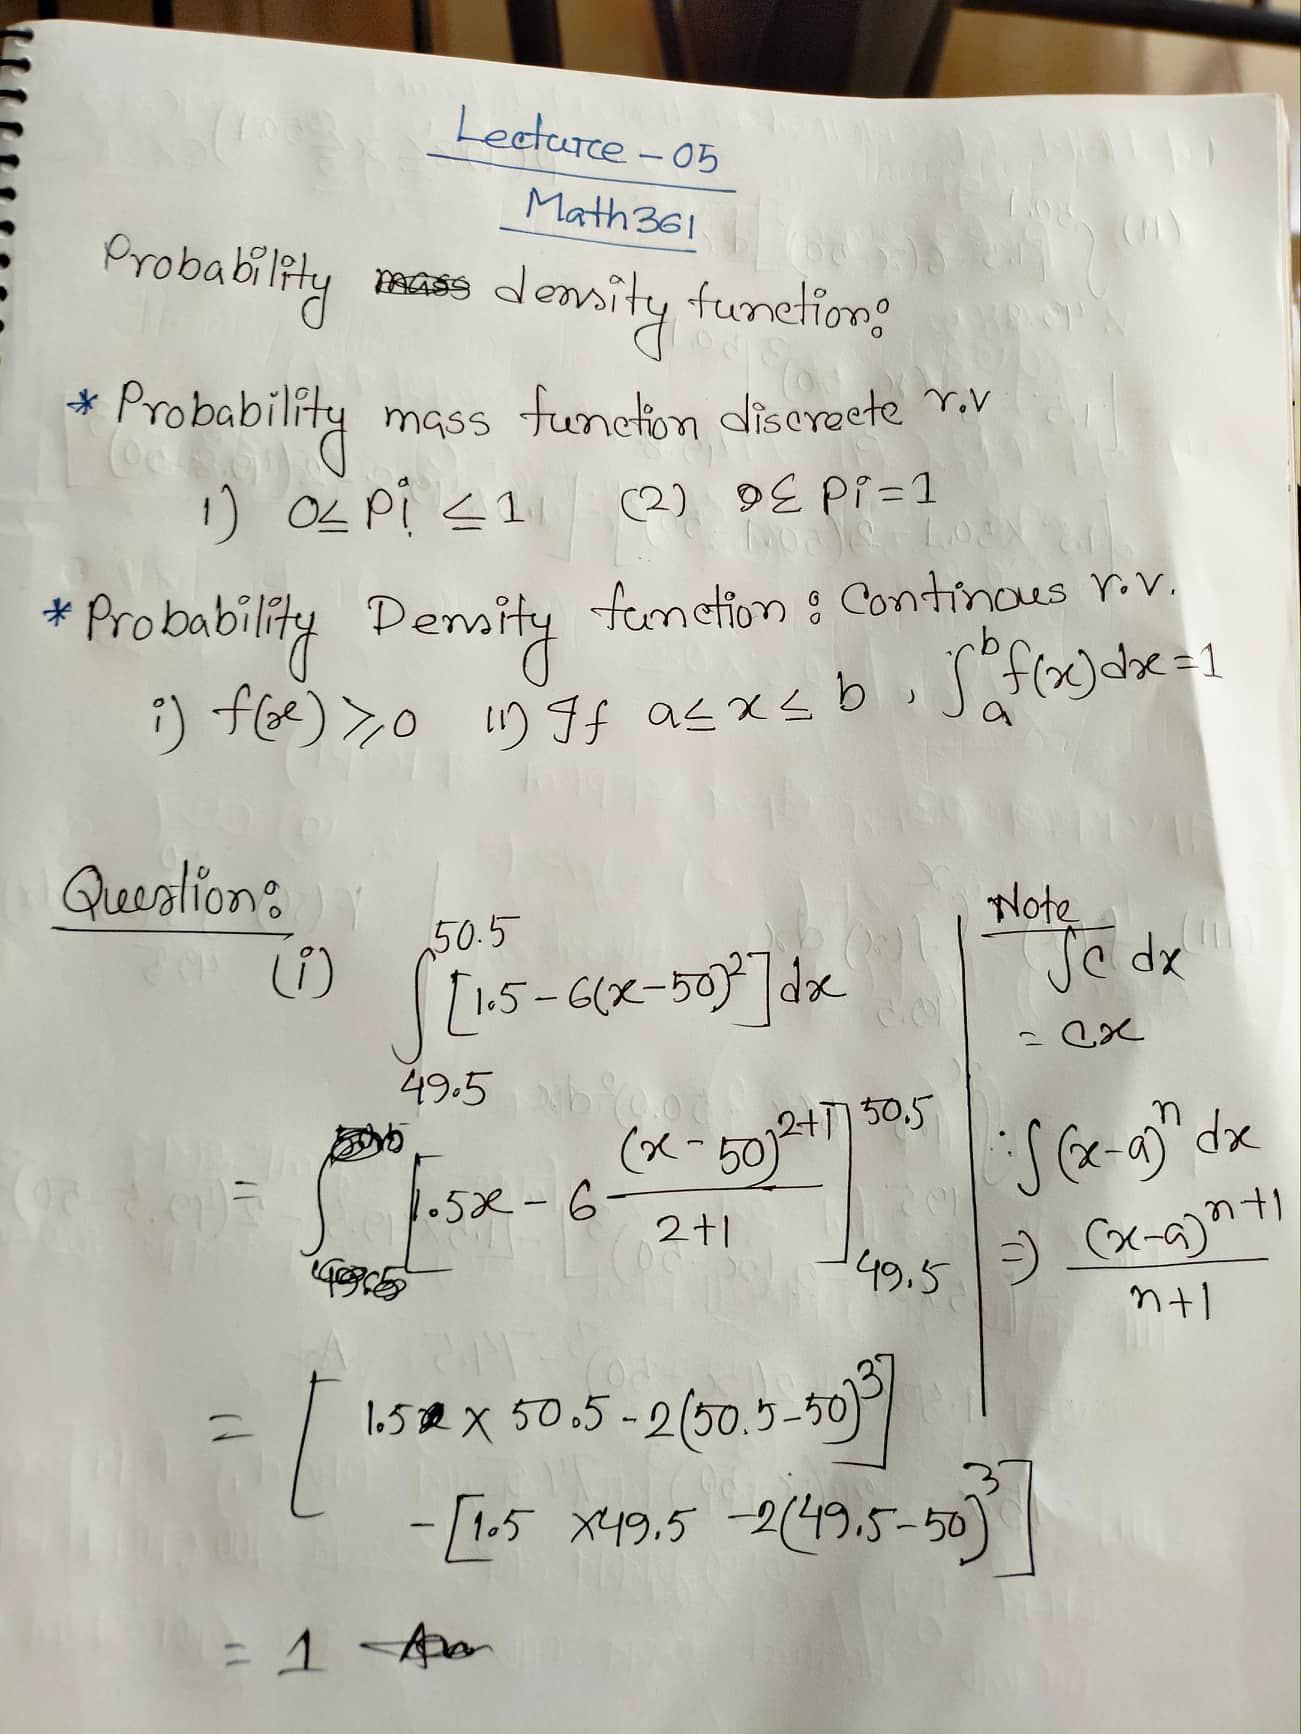 Lecture - 05
Math361
Probability mass density function:
* Probability mass function discrete r.v
1) 0≤ Pi ≤ 1 (2) Σ Pi = 1
* Probability Density function : Continous r.v.
i) f(x) ≥ 0 ii) If a ≤ x ≤ b , ∫_a^b f(x) dx = 1
Question:
(i) ∫_{49.5}^{50.5} [1.5 - 6(x-50)^2] dx
= ∫ [1.5x - 6 (x-50)^{2+1}/(2+1)]_{49.5}^{50.5}
= [1.5 × 50.5 - 2(50.5-50)^3]
- [1.5 × 49.5 - 2(49.5-50)^3]
= 1
Note
∫c dx
= cx
∴ ∫(x-a)^n dx
⇒ (x-a)^{n+1}/(n+1)